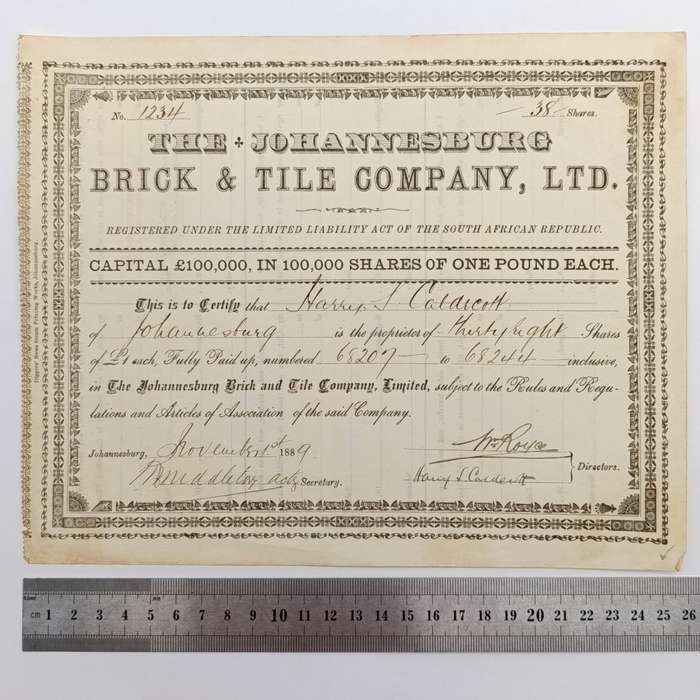 No. 1234 38 Shares.
THE JOHANNESBURG
BRICK & TILE COMPANY, LTD.
REGISTERED UNDER THE LIMITED LIABILITY ACT OF THE SOUTH AFRICAN REPUBLIC.
CAPITAL £100,000, IN 100,000 SHARES OF ONE POUND EACH.
This is to Certify that Harry S. Caldecott
of Johannesburg is the proprietor of thirty eight Shares
of £1 each, Fully Paid up, numbered 68207 to 68244 inclusive,
in The Johannesburg Brick and Tile Company, Limited, subject to the Rules and Regu-
lations and Articles of Association of the said Company.
Johannesburg, November 1st 1889 Wm Royce
Middleton Secretary. Harry S Caldecott Directors.
Diggers' News Steam Printing Works, Johannesburg.
cm 1 2 3 4 5 6 7 8 9 10 11 12 13 14 15 16 17 18 19 20 21 22 23 24 25 26